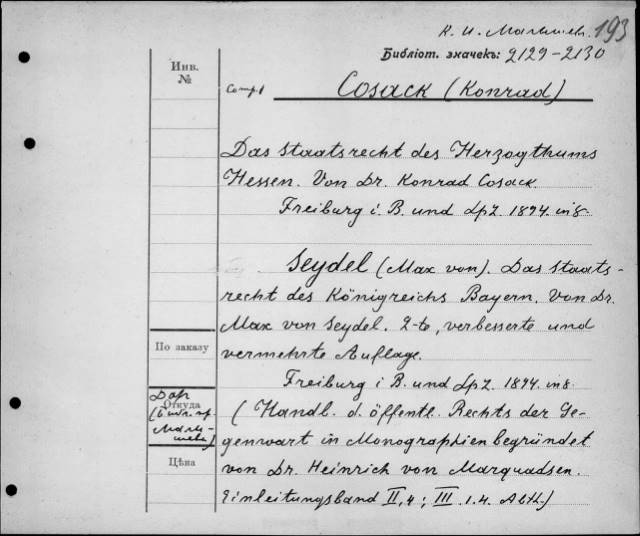 К. И. Малышев. 193
Библіот. значекъ: 2129-2130
Инв.
№
Cosack (Konrad)
Das Staatsrecht des Herzogthums
Hessen. Von Dr. Konrad Cosack.
Freiburg i. B. und Lpz. 1894. in 8.
Seydel (Max von). Das Staats-
recht des Königreichs Bayern. Von Dr.
Max von Seydel. 2-te, verbesserte und
vermehrte Auflage.
Freiburg i B. und Lpz. 1894. in 8.
(Handl. d. öffentl. Rechts der Ge-
genwart in Monographien begründet
von Dr. Heinrich von Marquadsen.
Einleitungsband II,4; III. 1.4. Abth.)
По заказу
Дар
Откуда
Малы-
шева)
Цѣна